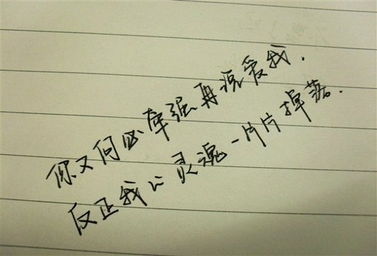 你又何必牵强再说爱我.
反正我心灵魂一片片掉落.